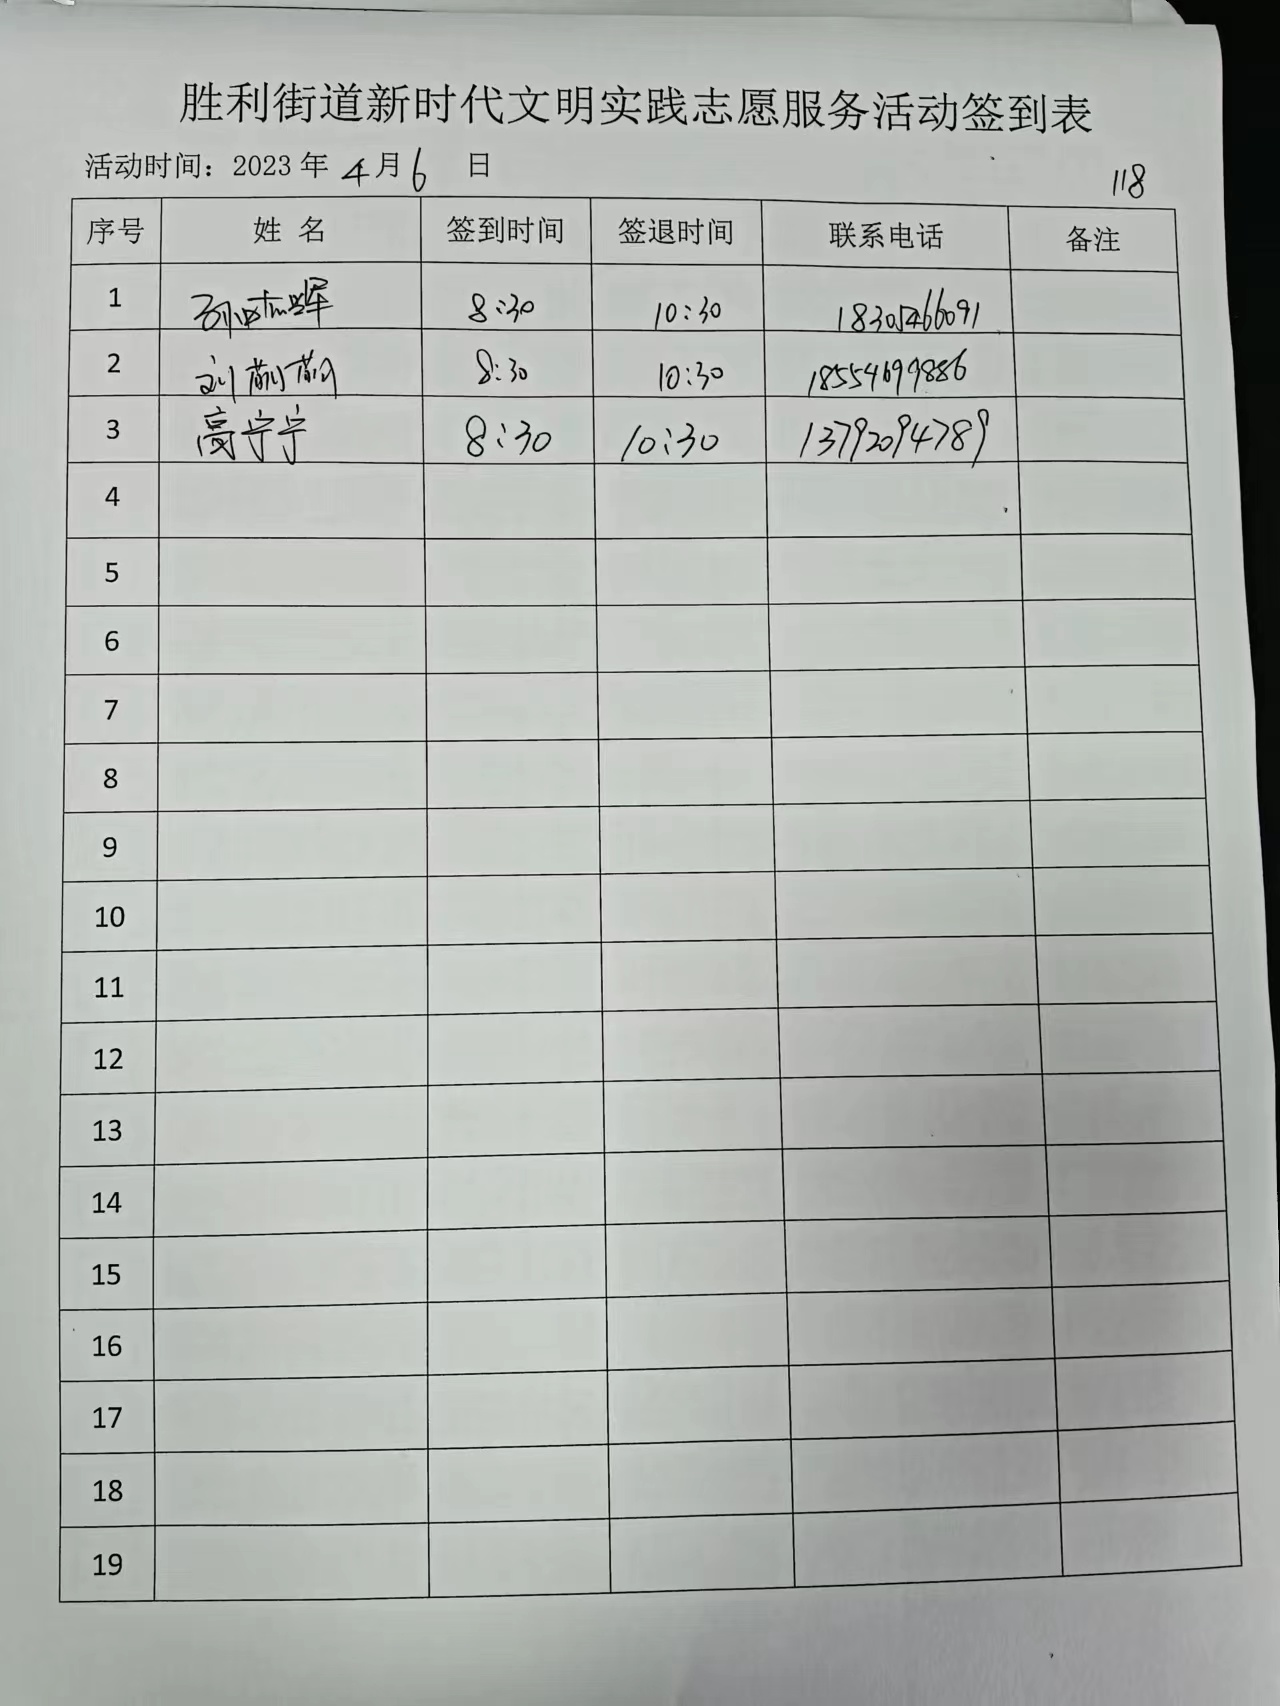 胜利街道新时代文明实践志愿服务活动签到表
活动时间：2023 年 4 月 6 日
118
序号 姓 名 签到时间 签退时间 联系电话 备注
1 8:30 10:30 18305466091
2 刘 8:30 10:30 18554699886
3 高宁宁 8:30 10:30 13792094789
4
5
6
7
8
9
10
11
12
13
14
15
16
17
18
19